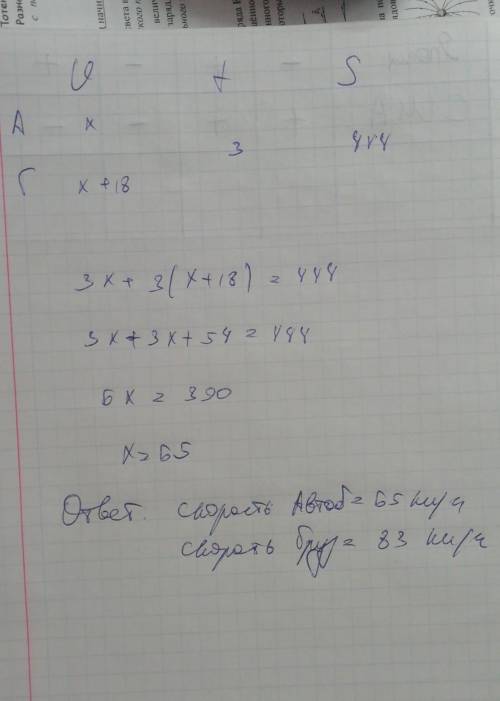 υ t S
А x
3 444
Г x + 18
3x + 3(x+18) = 444
3x + 3x + 54 = 444
6x = 390
x = 65
Ответ. скорость Автоб = 65 км/ч
скорость Груз = 83 км/ч